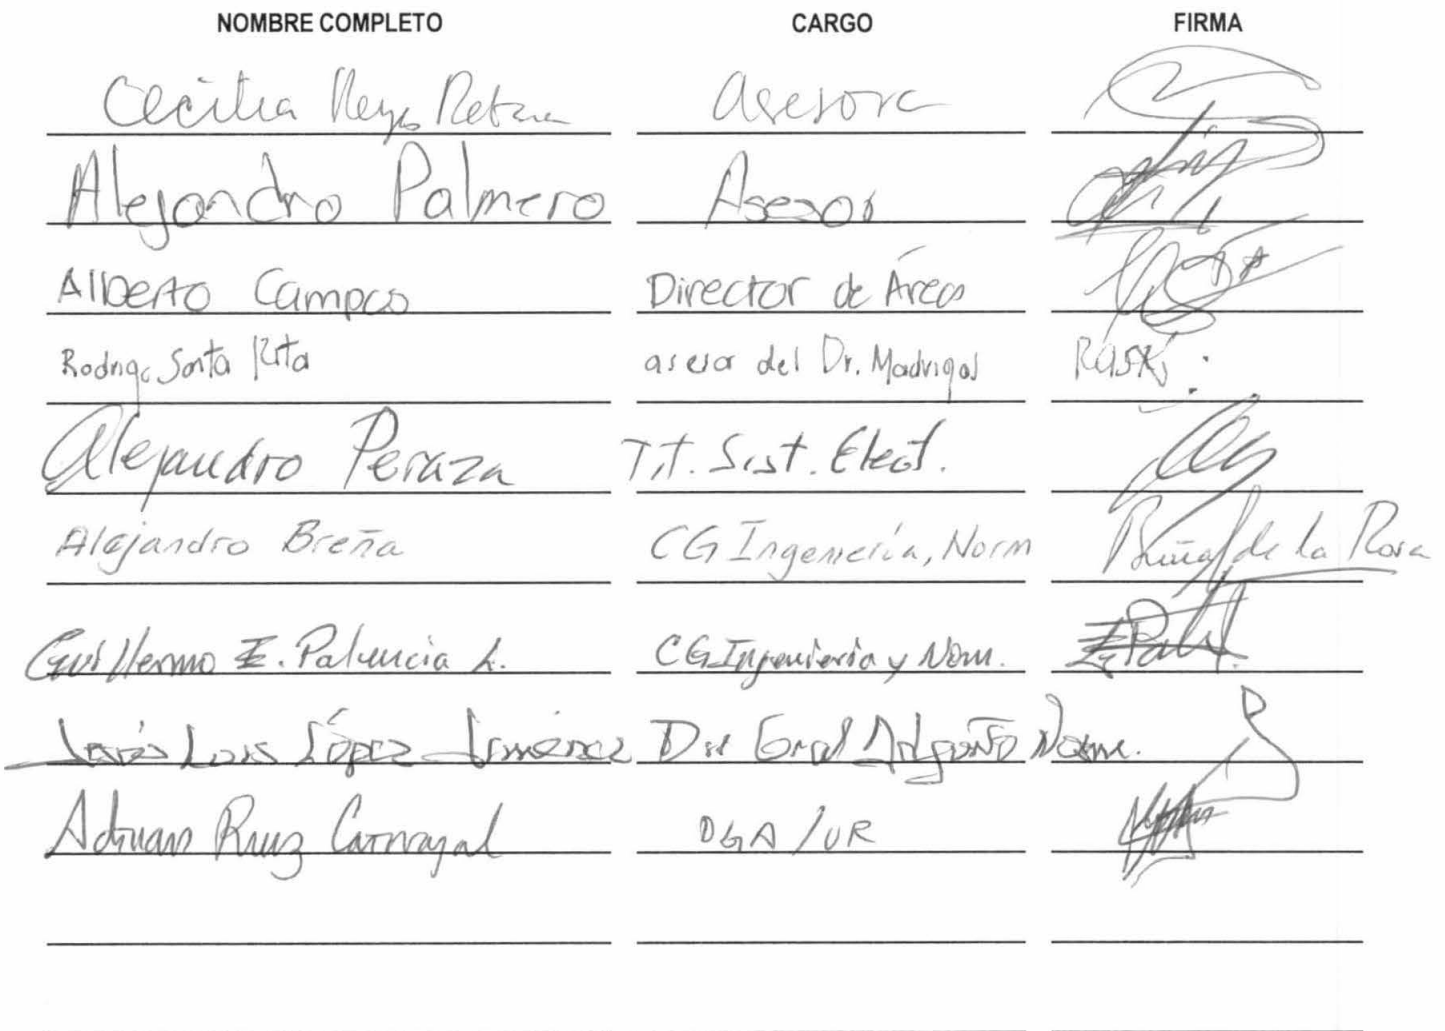 NOMBRE COMPLETO CARGO FIRMA
Cecilia Reyes Retana Asesora
Alejandro Palmero Asesor
Alberto Campos Director de Área
Rodrigo Santa Rita asesor del Dr. Madrigal
Alejandro Peraza Tit. Sist. Elect.
Alejandro Breña CG Ingeniería, Norm Breña de la Rosa
Guillermo E. Palencia L. CG Ingeniería y Nom.
Jesús Luis López Jiménez Dir Gral Norm.
Adrian Ruiz Carvajal DGA/UR